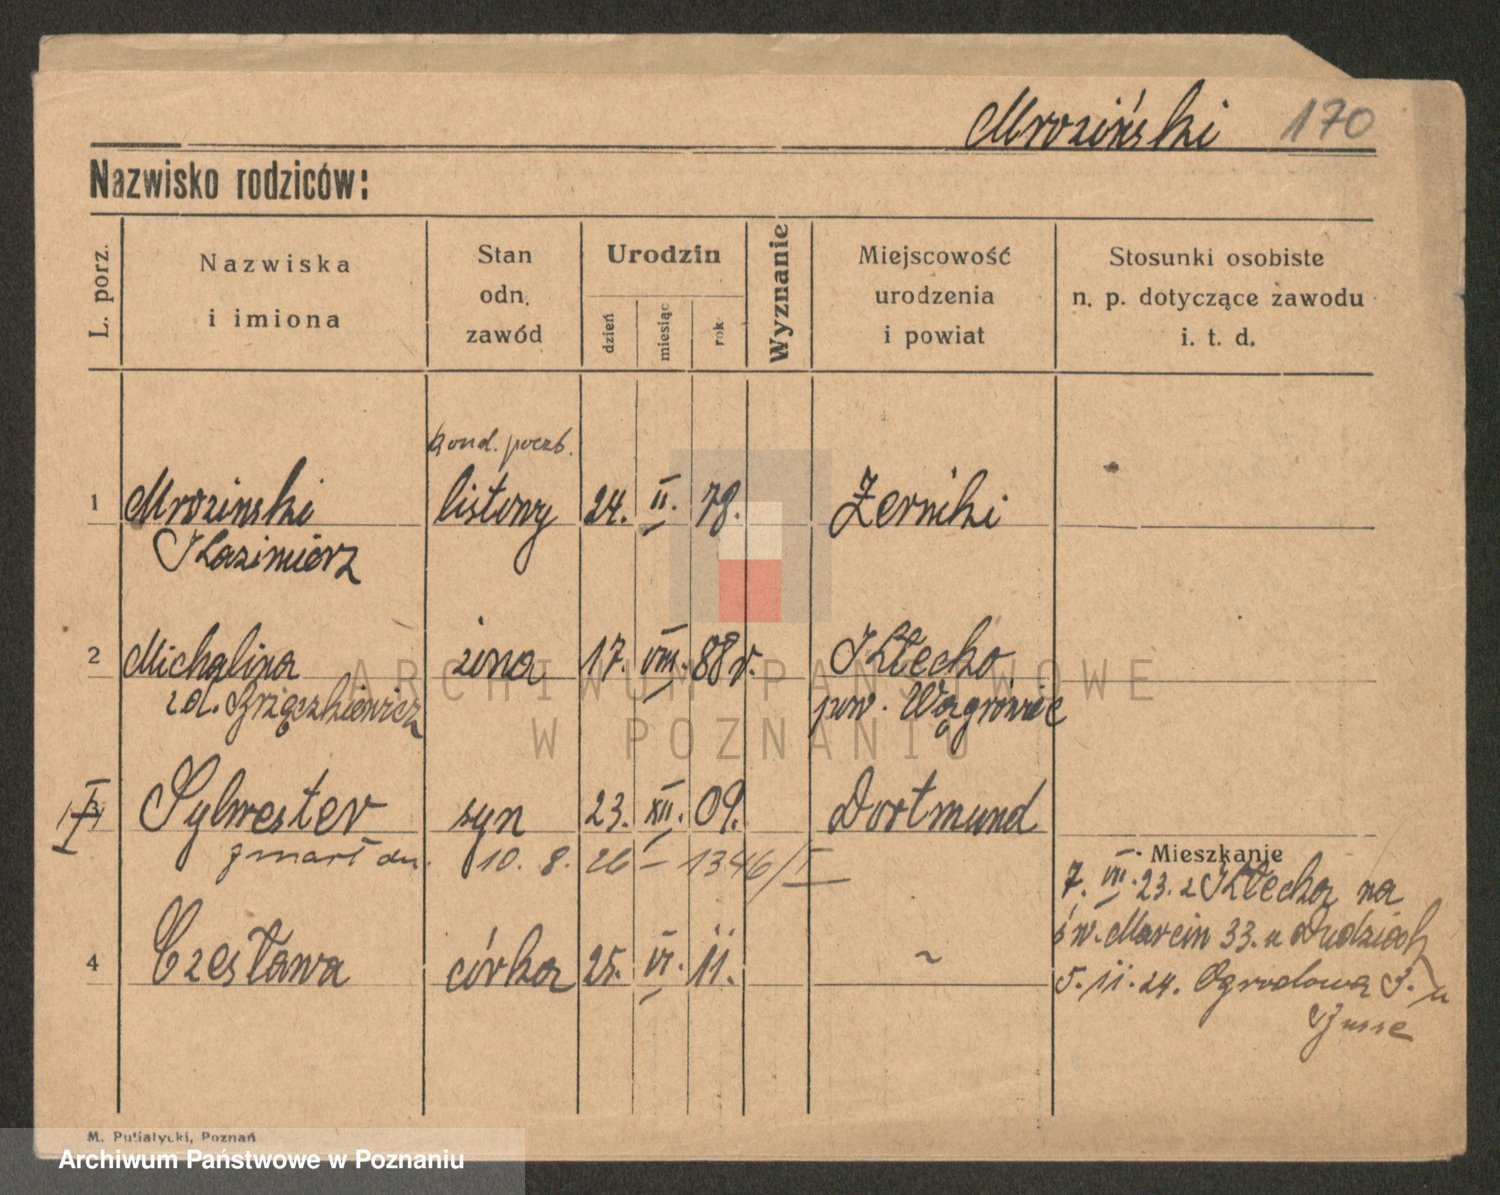 Mroziński 170
Nazwisko rodziców:
L. porz.
Nazwiska
i imiona
Stan
odn.
zawód
Urodzin
dzień
miesiąc
rok
Wyznanie
Miejscowość
urodzenia
i powiat
Stosunki osobiste
n. p. dotyczące zawodu
i. t. d.
1 Mrozinski listowy 24. II. 78. Zerniki
Kazimierz
2 Michalina żona 17. VIII. 88 r. Kłecko
pow. Wągrówiec
3 Sylwester syn 23. XII. 09. Dortmund
zmarł dn. 10. 8. 26 – 1346/I
Mieszkanie
7. VIII. 23. z Kłecka na
św. Marcin 33. u
4 Czesława córka 25. VI. 11. ~
5. 11. 24. Ogrodowa u
ARCHIWUM PAŃSTWOWE
W POZNANIU
M. Putiatycki, Poznań
Archiwum Państwowe w Poznaniu